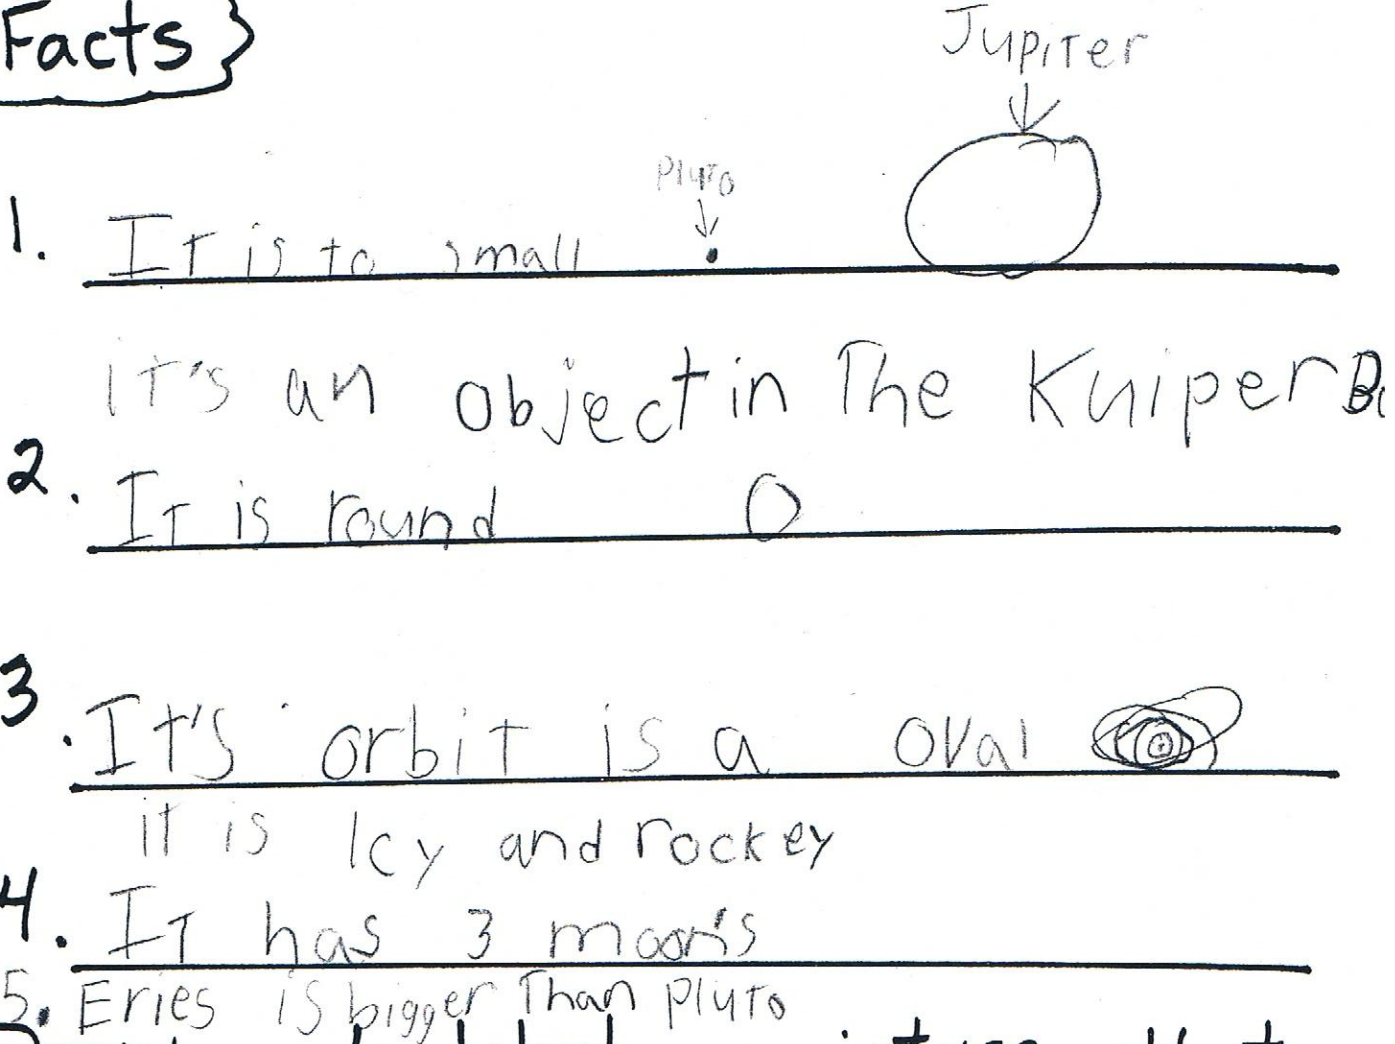 Facts
Jupiter
Pluto
1. It is to small
it's an object in The Kuiper
2. It is round
3. It's orbit is a oval
it is Icy and rockey
4. It has 3 moon's
5. Eries is bigger Than pluto